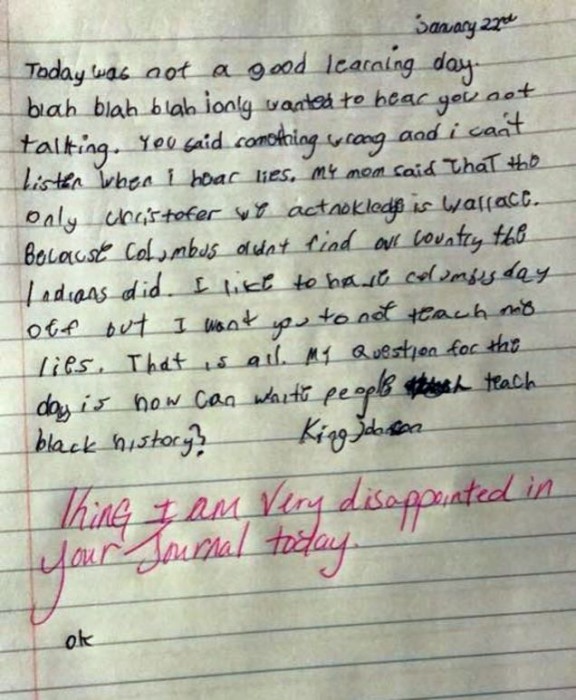 January 22nd
Today was not a good learning day.
blah blah blah i only wanted to hear you not
talking. You said something wrong and i can't
listen when i hear lies. My mom said That the
only christofer we acknoledge is Wallace.
Because Columbus didnt find our country the
Indians did. I like to have columbus day
off but I want you to not teach me
lies. That is all. My Question for the
day is how can white people teach
black history? King Johnson
King I am very disappointed in
your Journal today.
ok